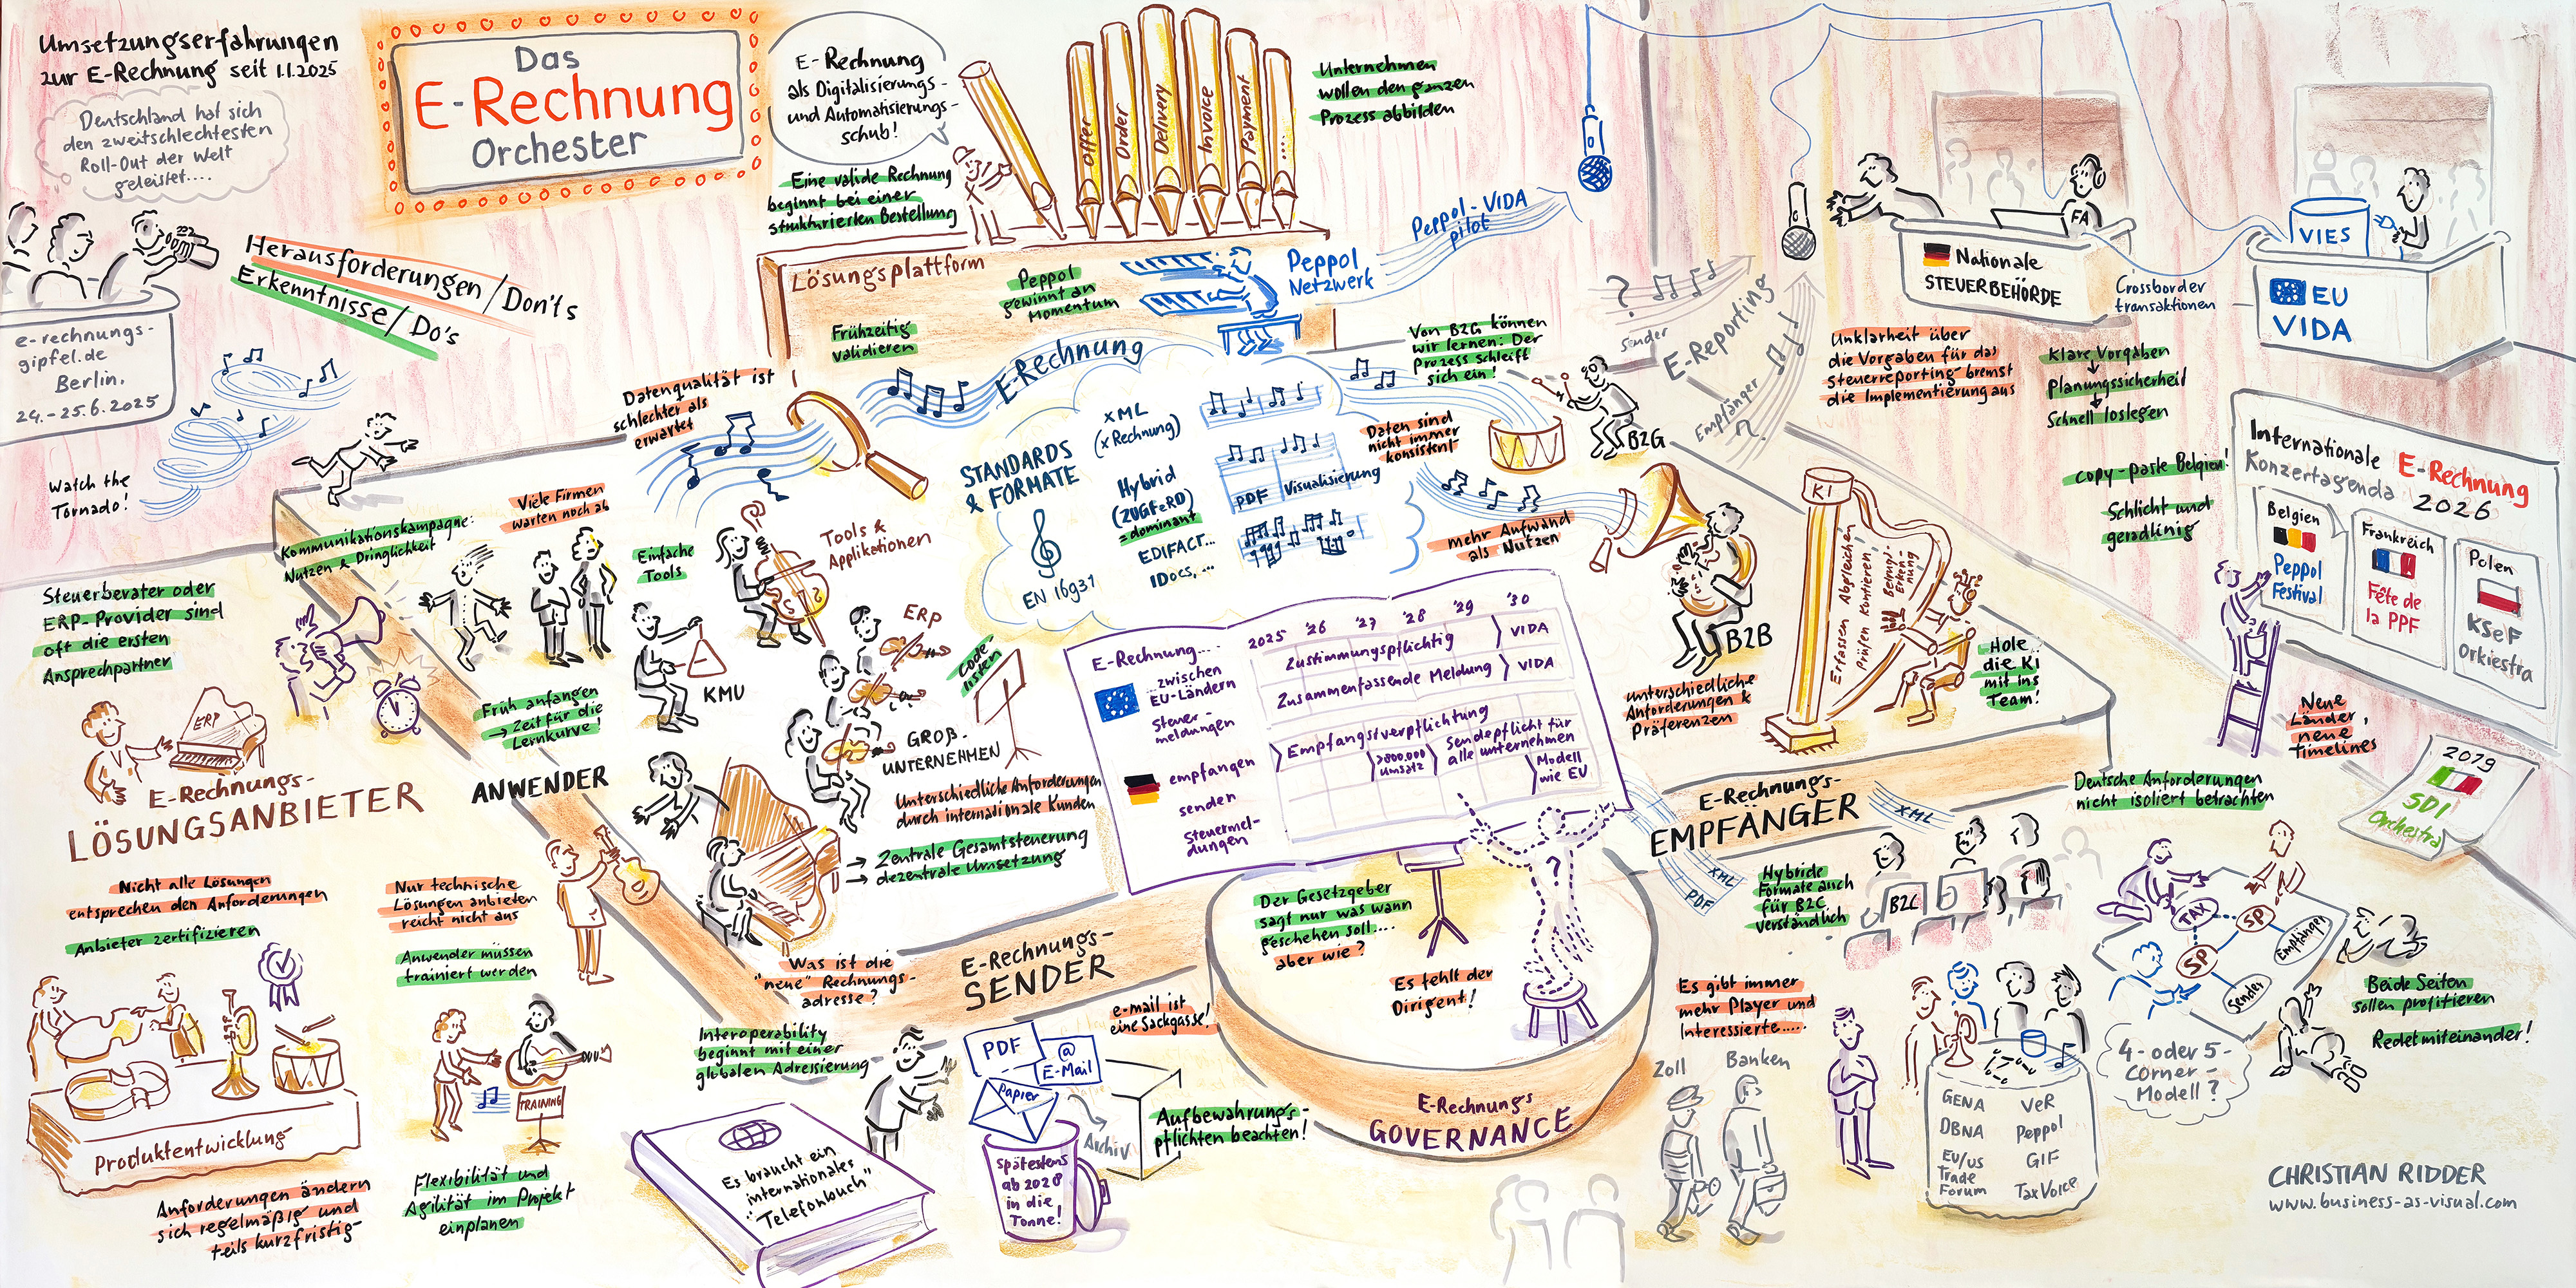 Umsetzungserfahrungen
zur E-Rechnung seit 1.1.2025
Deutschland hat sich
den zweitschlechtesten
Roll-Out der Welt
geleistet....
Das
E-Rechnung
Orchester
E-Rechnung
als Digitalisierungs-
und Automatisierungs-
schub!
Eine valide Rechnung
beginnt bei einer
strukturierten Bestellung
Offer
Order
Delivery
Invoice
Payment
....
Unternehmen
wollen den ganzen
Prozess abbilden
Herausforderungen/Don'ts
Erkenntnisse/Do's
e-rechnungs-
gipfel.de
Berlin,
24.-25.6.2025
Watch the
Tornado!
Lösungsplattform
Peppol
gewinnt an
Momentum
Peppol
Netzwerk
Peppol-VIDA
pilot
Frühzeitig
validieren
Datenqualität ist
schlechter als
erwartet
E-Rechnung
STANDARDS
& FORMATE
EN 16931
XML
(xRechnung)
Hybrid
(ZUGFeRD)
=dominant
EDIFACT...
IDocs,...
PDF
Visualisierung
Von B2G können
wir lernen: Der
Prozess schleift
sich ein!
Daten sind
nicht immer
konsistent
B2G
mehr Aufwand
als Nutzen
B2B
unterschiedliche
Anforderungen &
Präferenzen
?
Sender
E-Reporting
Empfänger
FA
Nationale
STEUERBEHÖRDE
Crossborder
transaktionen
VIES
EU
VIDA
Unklarheit über
die Vorgaben für das
Steuerreporting bremst
die Implementierung aus
Klare Vorgaben
Planungssicherheit
Schnell loslegen
copy-paste Belgien!
Schlicht und
geradlinig
Internationale E-Rechnung
Konzertagenda 2026
Belgien
Peppol
Festival
Frankreich
Fête de
la PPF
Polen
KSeF
Orkiestra
Neue
Länder,
neue
Timelines
2019
SDI
Orchestra
KI
Erfassen Abgleichen
Prüfen Kontieren
Betrugs-
Erken-
nung
Hole
die KI
mit ins
Team!
Kommunikationskampagne:
Nutzen & Dringlichkeit
Viele Firmen
warten noch ab
Einfache
Tools
Tools &
Applikationen
ERP
KMU
Codelisten
GROß-
UNTERNEHMEN
Früh anfangen
→ Zeit für die
Lernkurve!
ANWENDER
Unterschiedliche Anforderungen
durch internationale Kunden
→ Zentrale Gesamtsteuerung
→ dezentrale Umsetzung
Steuerberater oder
ERP-Provider sind
oft die ersten
Ansprechpartner
ERP
E-Rechnungs-
LÖSUNGSANBIETER
Nicht alle Lösungen
entsprechen den Anforderungen
Anbieter zertifizieren
Produktentwicklung
Anforderungen ändern
sich regelmäßig und
teils kurzfristig
Nur technische
Lösungen anbieten
reicht nicht aus
Anwender müssen
trainiert werden
TRAINING
Flexibilität und
Agilität im Projekt
einplanen
E-Rechnung....
...zwischen
EU-Ländern
Steuer-
meldungen
empfangen
senden
Steuermel-
dungen
2025 '26 '27 '28 '29 '30
Zustimmungspflichtig
VIDA
Zusammenfassende Meldung
VIDA
Empfangsverpflichtung
>800.000
Umsatz
Sendepflicht für
alle unternehmen
Modell
wie EU
Was ist die
"neue" Rechnungs-
adresse?
E-Rechnungs-
SENDER
Interoperability
beginnt mit einer
globalen Adressierung
Es braucht ein
internationales
"Telefonbuch"
e-mail ist
eine Sackgasse!
PDF
@
E-Mail
Papier
Archiv
Spätestens
ab 2028
in die
Tonne!
Aufbewahrungs-
pflichten beachten!
Der Gesetzgeber
sagt nur was wann
geschehen soll....
aber wie?
?
Es fehlt der
Dirigent!
E-Rechnungs
GOVERNANCE
E-Rechnungs-
EMPFÄNGER
XML
XML
PDF
Hybride
Formate auch
für B2C
verständlich
B2C
Deutsche Anforderungen
nicht isoliert betrachten
TAX
SP
SP
Empfänger
Sender
Beide Seiten
sollen profitieren
Redet miteinander!
4- oder 5-
Corner-
Modell?
Es gibt immer
mehr Player und
Interessierte....
Zoll
Banken
GENA
DBNA
EU/US
Trade
Forum
VeR
Peppol
GIF
TaxVoice
CHRISTIAN RIDDER
www.business-as-visual.com